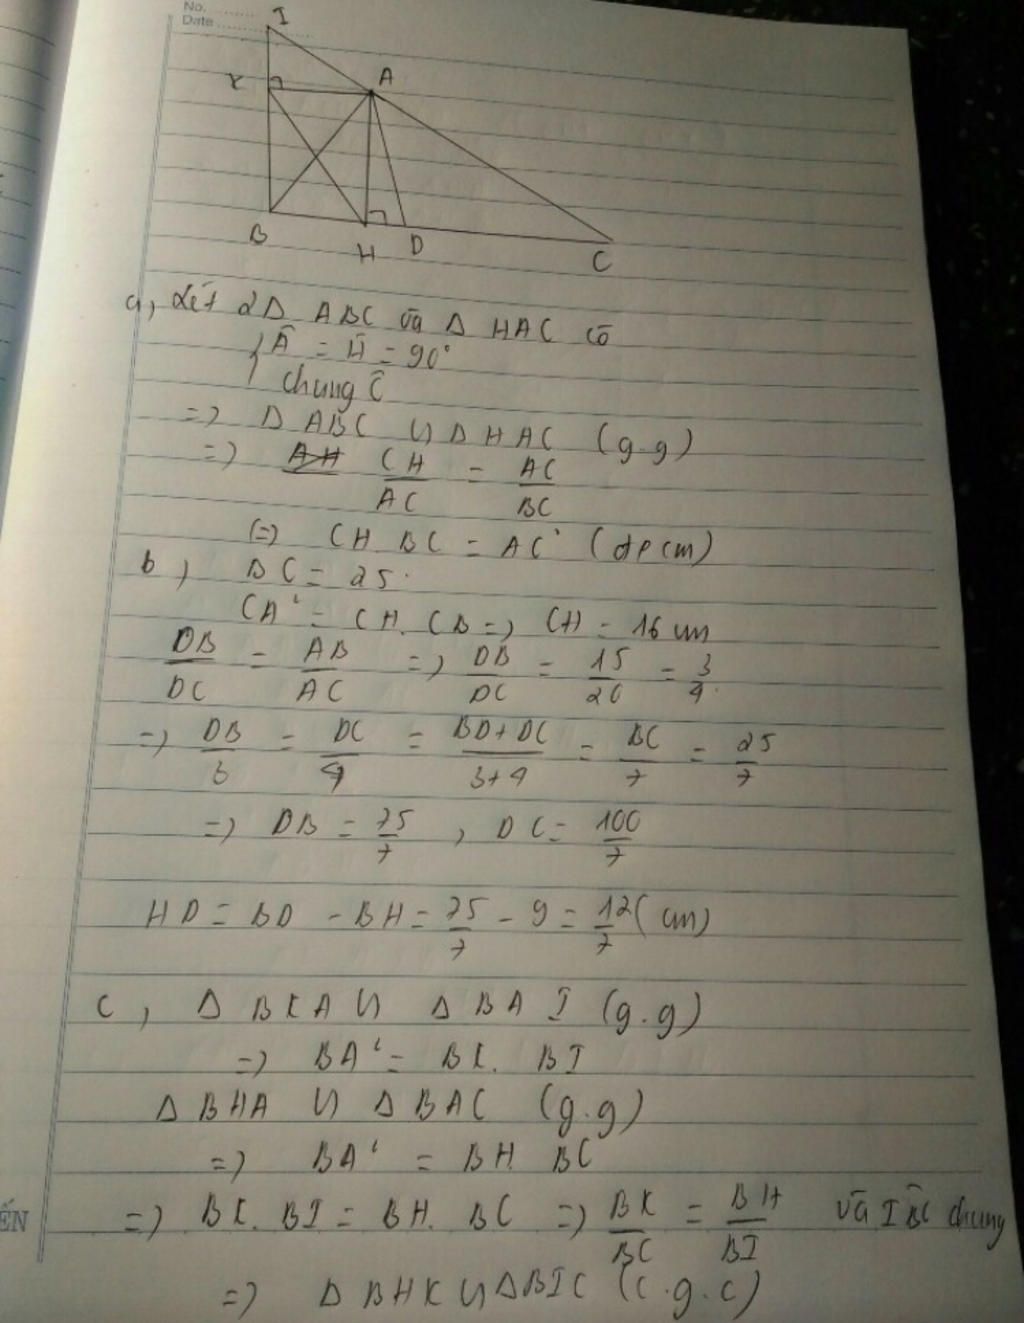 No. ........
Date ........
I
K A
B H D C
a, Xét 2Δ ABC và Δ HAC có
Â = Ĥ = 90°
chung Ĉ
=> Δ ABC ᔕ Δ HAC (g.g)
=> CH/AC = AC/BC
(=) CH. BC = AC² (đpcm)
b, BC = 25.
CA² = CH. CB => CH = 16 cm
DB/DC = AB/AC => DB/DC = 15/20 = 3/4.
=> DB/3 = DC/4 = BD+DC/3+4 = BC/7 = 25/7
=> DB = 75/7 , DC = 100/7
HD = BD - BH = 75/7 - 9 = 12/7 (cm)
c, Δ BKA ᔕ Δ BAI (g.g)
=> BA² = BK. BI
Δ BHA ᔕ Δ BAC (g.g)
=> BA² = BH. BC
ẾN
=> BK. BI = BH. BC => BK/BC = BH/BI và IB̂C chung
=> Δ BHK ᔕ ΔBIC (c.g.c)